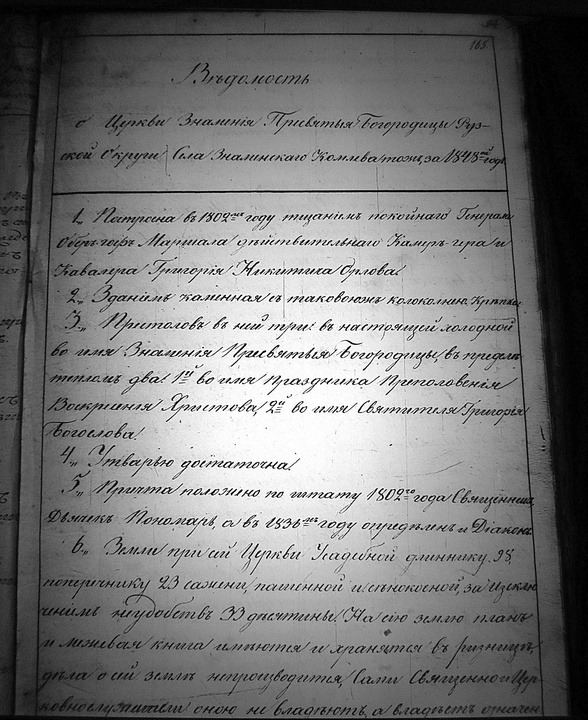 165.
Вѣдомость
о Церкви Знаменія Пресвятыя Богородицы Руз-
ской Округи Села Знаменскаго тожъ, за 1848й годъ
1., Построена въ 1802мъ году тщаніемъ покойнаго Генерал
Оберъ гофъ Маршала дѣйствительнаго Камеръ-гера и
Кавалера Григорія Никитича Орлова.
2., Зданіемъ каменная съ таковоюжъ колокольнею, Крѣпка
3., Престоловъ въ ней три: въ настоящей холодной
во имя Знаменія Пресвятыя Богородицы, въ предѣл
тепломъ два: 1й во имя праздника Преполовенія
Воскресенія Христова, 2й во имя Святителя Григорія
Богослова.
4., Утварью достаточна.
5., Причта положено по штату 1802го года Священникъ,
Дьячекъ Пономарь, а въ 1836мъ году опредѣленъ и Діаконъ
6., Земли при сей Церкви Усадебной длиннику 98,
поперечнику 23 сажени, пашенной и сѣнокосной, за исклю
ченіемъ неудобствъ 33 десятины. На сію землю планъ
и межевая книга имѣются и хранятся въ ризницѣ,
дѣла о сей землѣ непроизводится, Сами Священно и Цер-
ковнослужители оною не владѣютъ, а владѣетъ означен